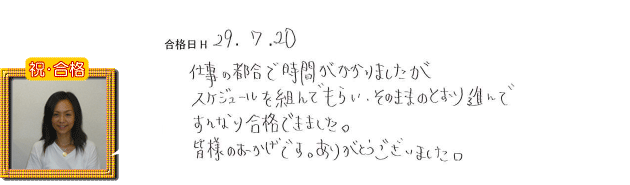 合格日H 29.7.20
祝・合格
仕事の都合で時間がかかりましたが
スケジュールを組んでもらい、そのままのとおり進んで
すんなり合格できました。
皆様のおかげです。ありがとうございました。